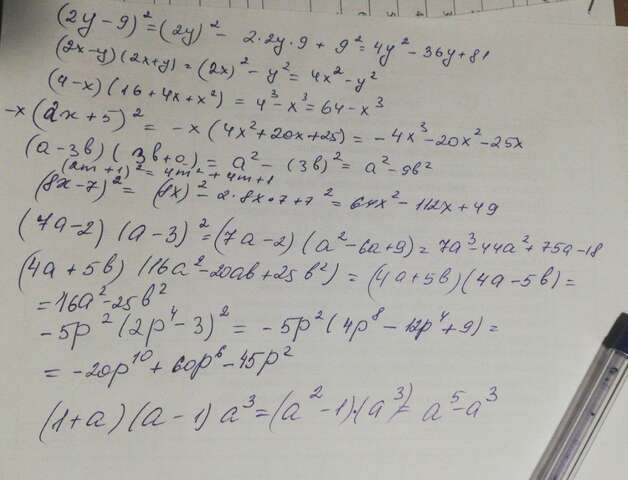 (2y-9)² = (2y)² - 2·2y·9 + 9² = 4y² - 36y + 81
(2x-y)(2x+y) = (2x)² - y² = 4x² - y²
(4-x)(16+4x+x²) = 4³ - x³ = 64 - x³
-x(2x+5)² = -x(4x²+20x+25) = -4x³ - 20x² - 25x
(a-3b)(3b+a) = a² - (3b)² = a² - 9b²
(2m+1)² = 4m² + 4m + 1
(8x-7)² = (8x)² - 2·8x·7 + 7² = 64x² - 112x + 49
(7a-2)(a-3)² = (7a-2)(a²-6a+9) = 7a³ - 44a² + 75a - 18
(4a+5b)(16a²-20ab+25b²) = (4a+5b)(4a-5b) =
= 16a² - 25b²
-5p²(2p⁴-3)² = -5p²(4p⁸ - 12p⁴ + 9) =
= -20p¹⁰ + 60p⁶ - 45p²
(1+a)(a-1)a³ = (a²-1)·(a³) = a⁵ - a³